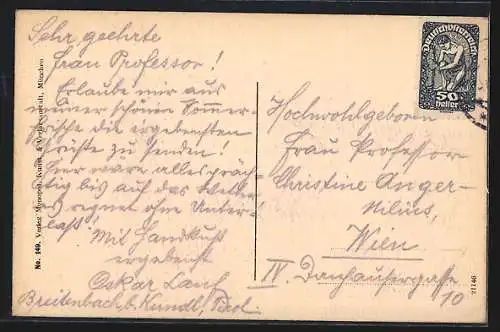 Sehr geehrte
Frau Professor!
Erlaube mir aus
meiner schönen Sommer-
frische die ergebensten
Grüße zu senden!
Hier wäre alles präch-
tig bis auf das Wetter
es regnet ohne Unter-
laß!
Mit Handkuß
ergebenst
Oskar Lauf
Breitenbach, b. Kundl, Tirol
No. 149. Verlag Monopol, Kunst- & Verlagsanstalt, München
Deutschösterreich
50
Heller
Hochwohlgeboren
Frau Professor
Christine Anger-
Nilius,
Wien
IV. Danhausergasse
10
21146